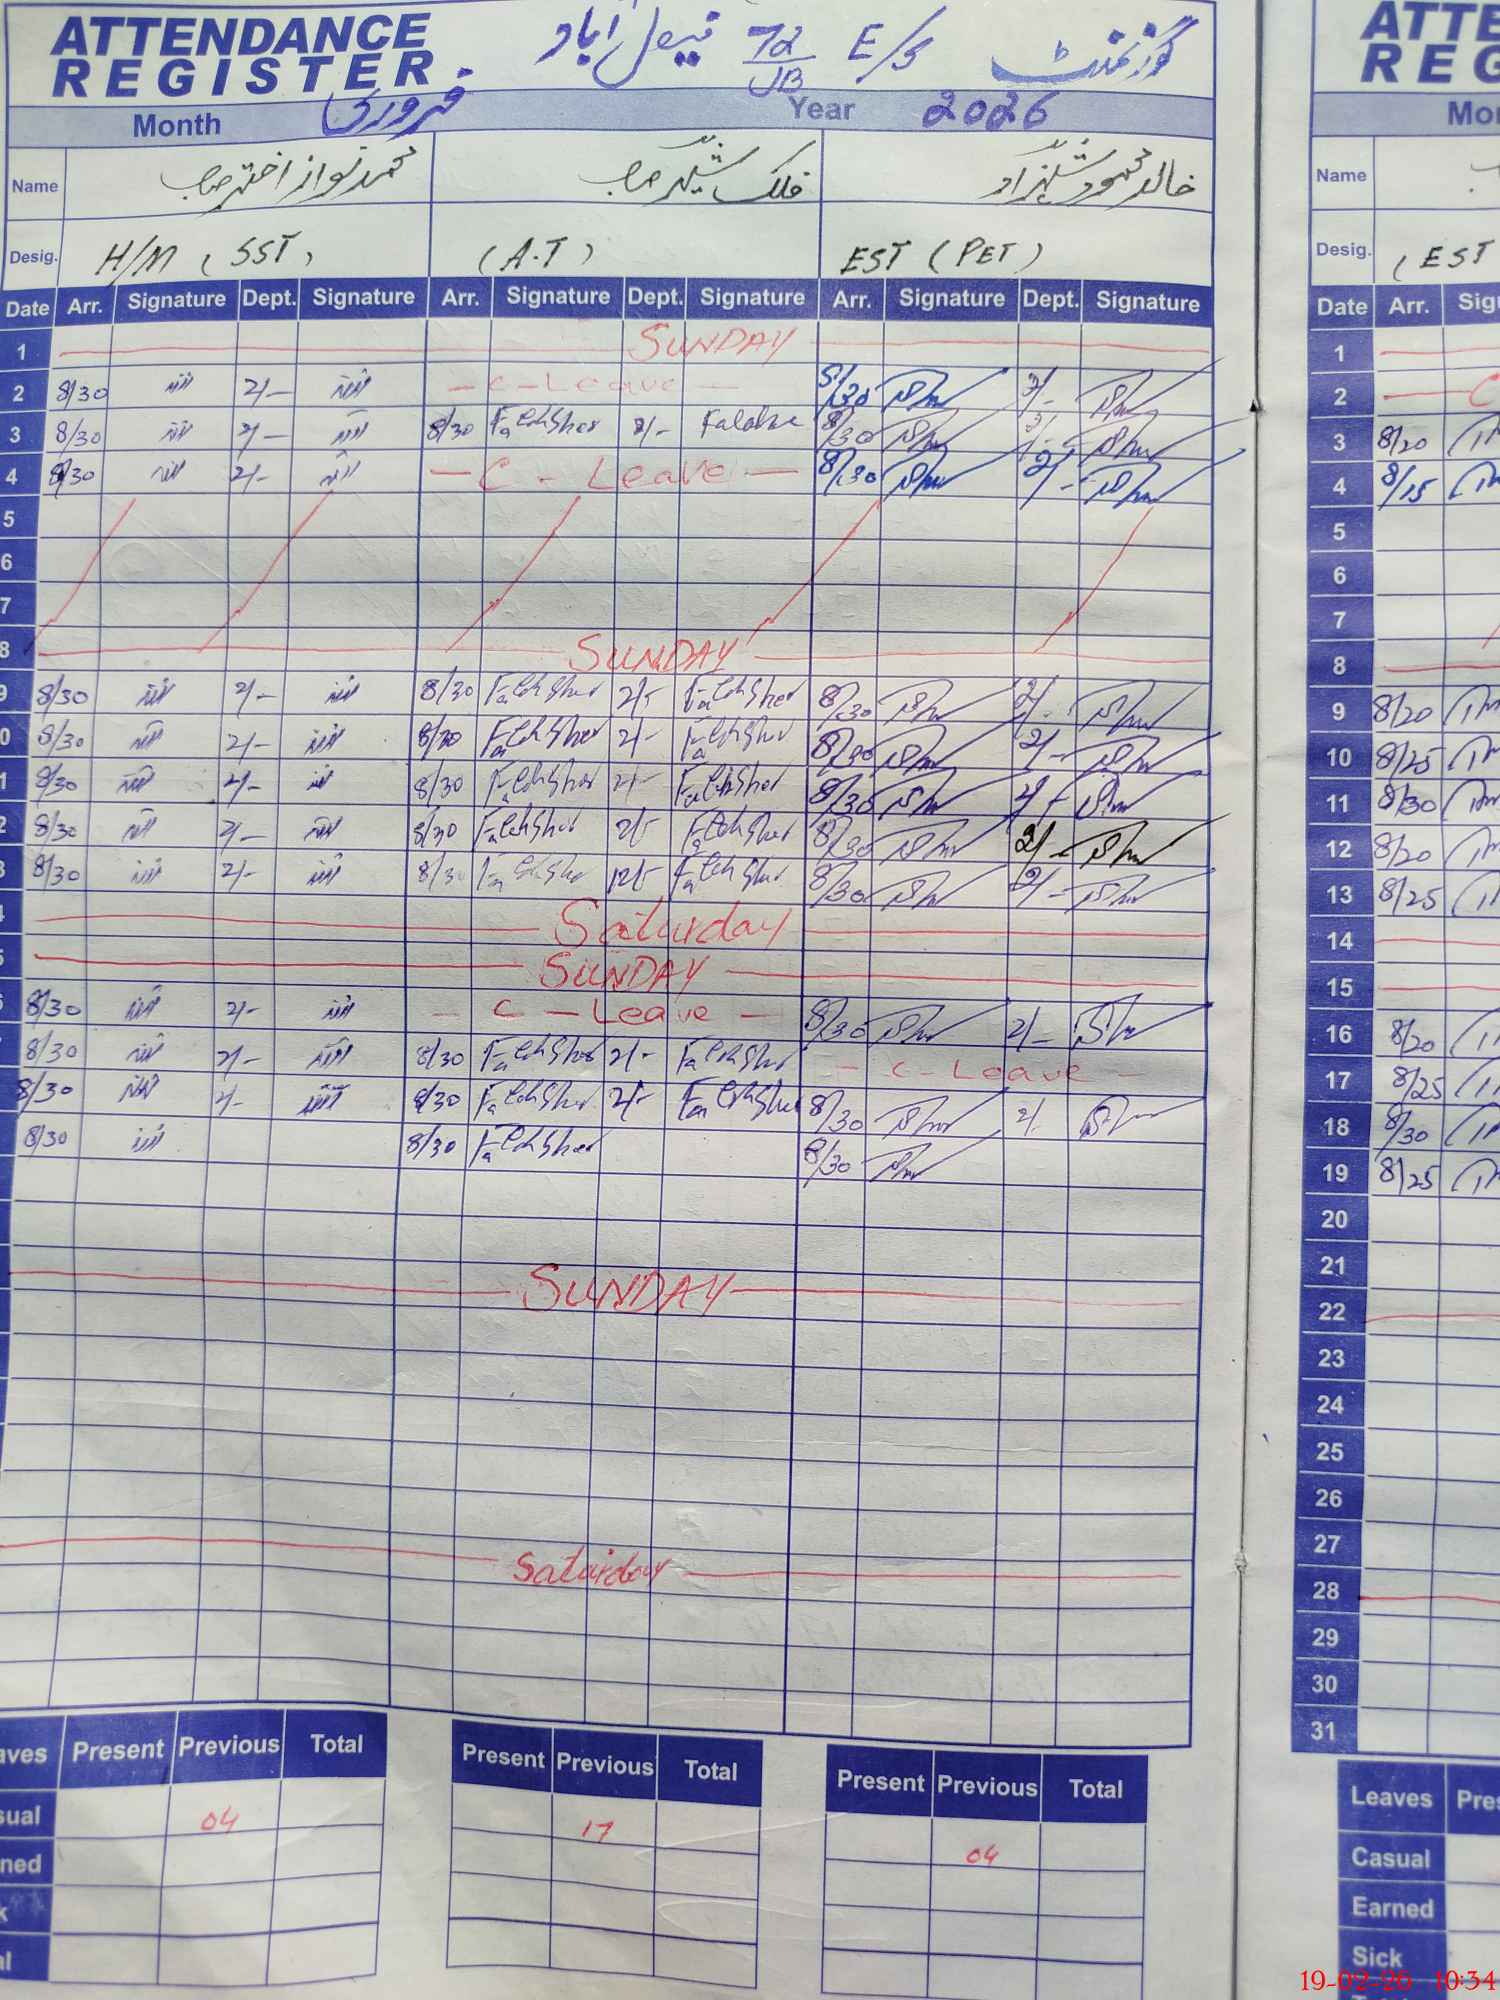 ATTENDANCE REGISTER
گورنمنٹ E/S 72/JB فیصل آباد
Month فروری Year 2026
Name محمد نواز اختر صاحب فلک شیر صاحب خالد محمود شہزاد
Desig. H/M (SST) (A.T) EST (PET)
Date Arr. Signature Dept. Signature Arr. Signature Dept. Signature Arr. Signature Dept. Signature
1 SUNDAY
2 8/30 2/- C-Leave 8/30 2/-
3 8/30 2/- 8/30 Falaksher 2/- 8/30 2/-
4 8/30 2/- C-Leave 8/30 2/-
5
6
7
8 SUNDAY
9 8/30 2/- 8/30 Falaksher 2/- Falaksher 8/30 2/-
0 8/30 2/- 8/30 Falaksher 2/- Falaksher 8/30 2/-
1 8/30 2/- 8/30 Falaksher 2/- Falaksher 8/30 2/-
2 8/30 2/- 8/30 Falaksher 2/- Falaksher 8/30 2/-
3 8/30 2/- 8/30 Falaksher 12/- Falaksher 8/30 2/-
4 Saturday
5 SUNDAY
8/30 2/- C-Leave 8/30 2/-
8/30 2/- 8/30 Falaksher 2/- Falaksher C-Leave
8/30 2/- 8/30 Falaksher 2/- Falaksher 8/30 2/-
8/30 8/30 Falaksher 8/30
SUNDAY
Saturday
aves Present Previous Total Present Previous Total Present Previous Total
sual 04 17 04
ned
k
al
ATTE
REG
Mo
Name
Desig. (EST
Date Arr. Sig
1
2 C
3 8/20
4 8/15
5
6
7
8
9 8/20
10 8/25
11 8/30
12 8/20
13 8/25
14
15
16 8/20
17 8/25
18 8/30
19 8/25
20
21
22
23
24
25
26
27
28
29
30
31
Leaves Pres
Casual
Earned
Sick
19-02-26 10:34